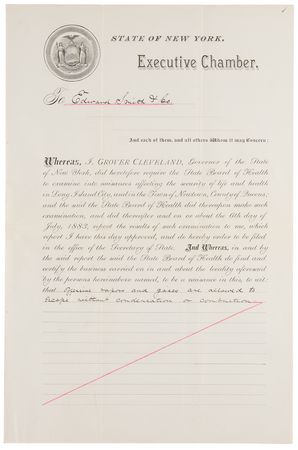 STATE OF NEW YORK.
Executive Chamber,
To Edward Smith & Co.
And each of them, and all others Whom it may Concern:
Whereas, I, GROVER CLEVELAND, Governor of the State
of New York, did heretofore require the State Board of Health
to examine into nuisances affecting the security of life and health
in Long Island City, and in the Town of Newtown, County of Queens,
and the said the State Board of Health did thereupon make such
examination, and did thereafter and on or about the 6th day of
July, 1883, report the results of such examination to me, which
report I have this day approved, and do hereby order to be filed
in the office of the Secretary of State. And Whereas, in and by
the said report the said the State Board of Health do find and
certify the business carried on in and about the locality aforesaid
by the persons hereinabove named, to be a nuisance in this, to wit:
that vapors and gases are allowed to
escape without condensation or combustion